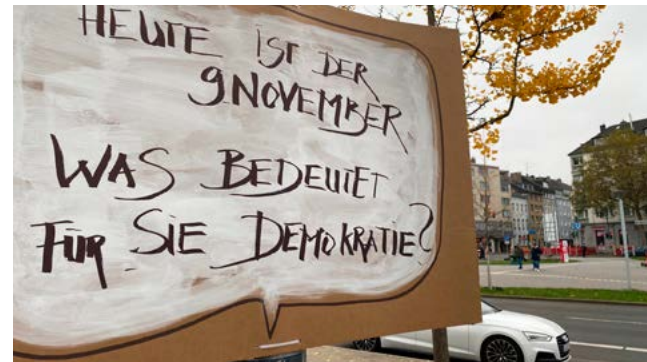 HEUTE IST DER
9NOVEMBER
WAS BEDEUTET
FÜR SIE DEMOKRATIE?